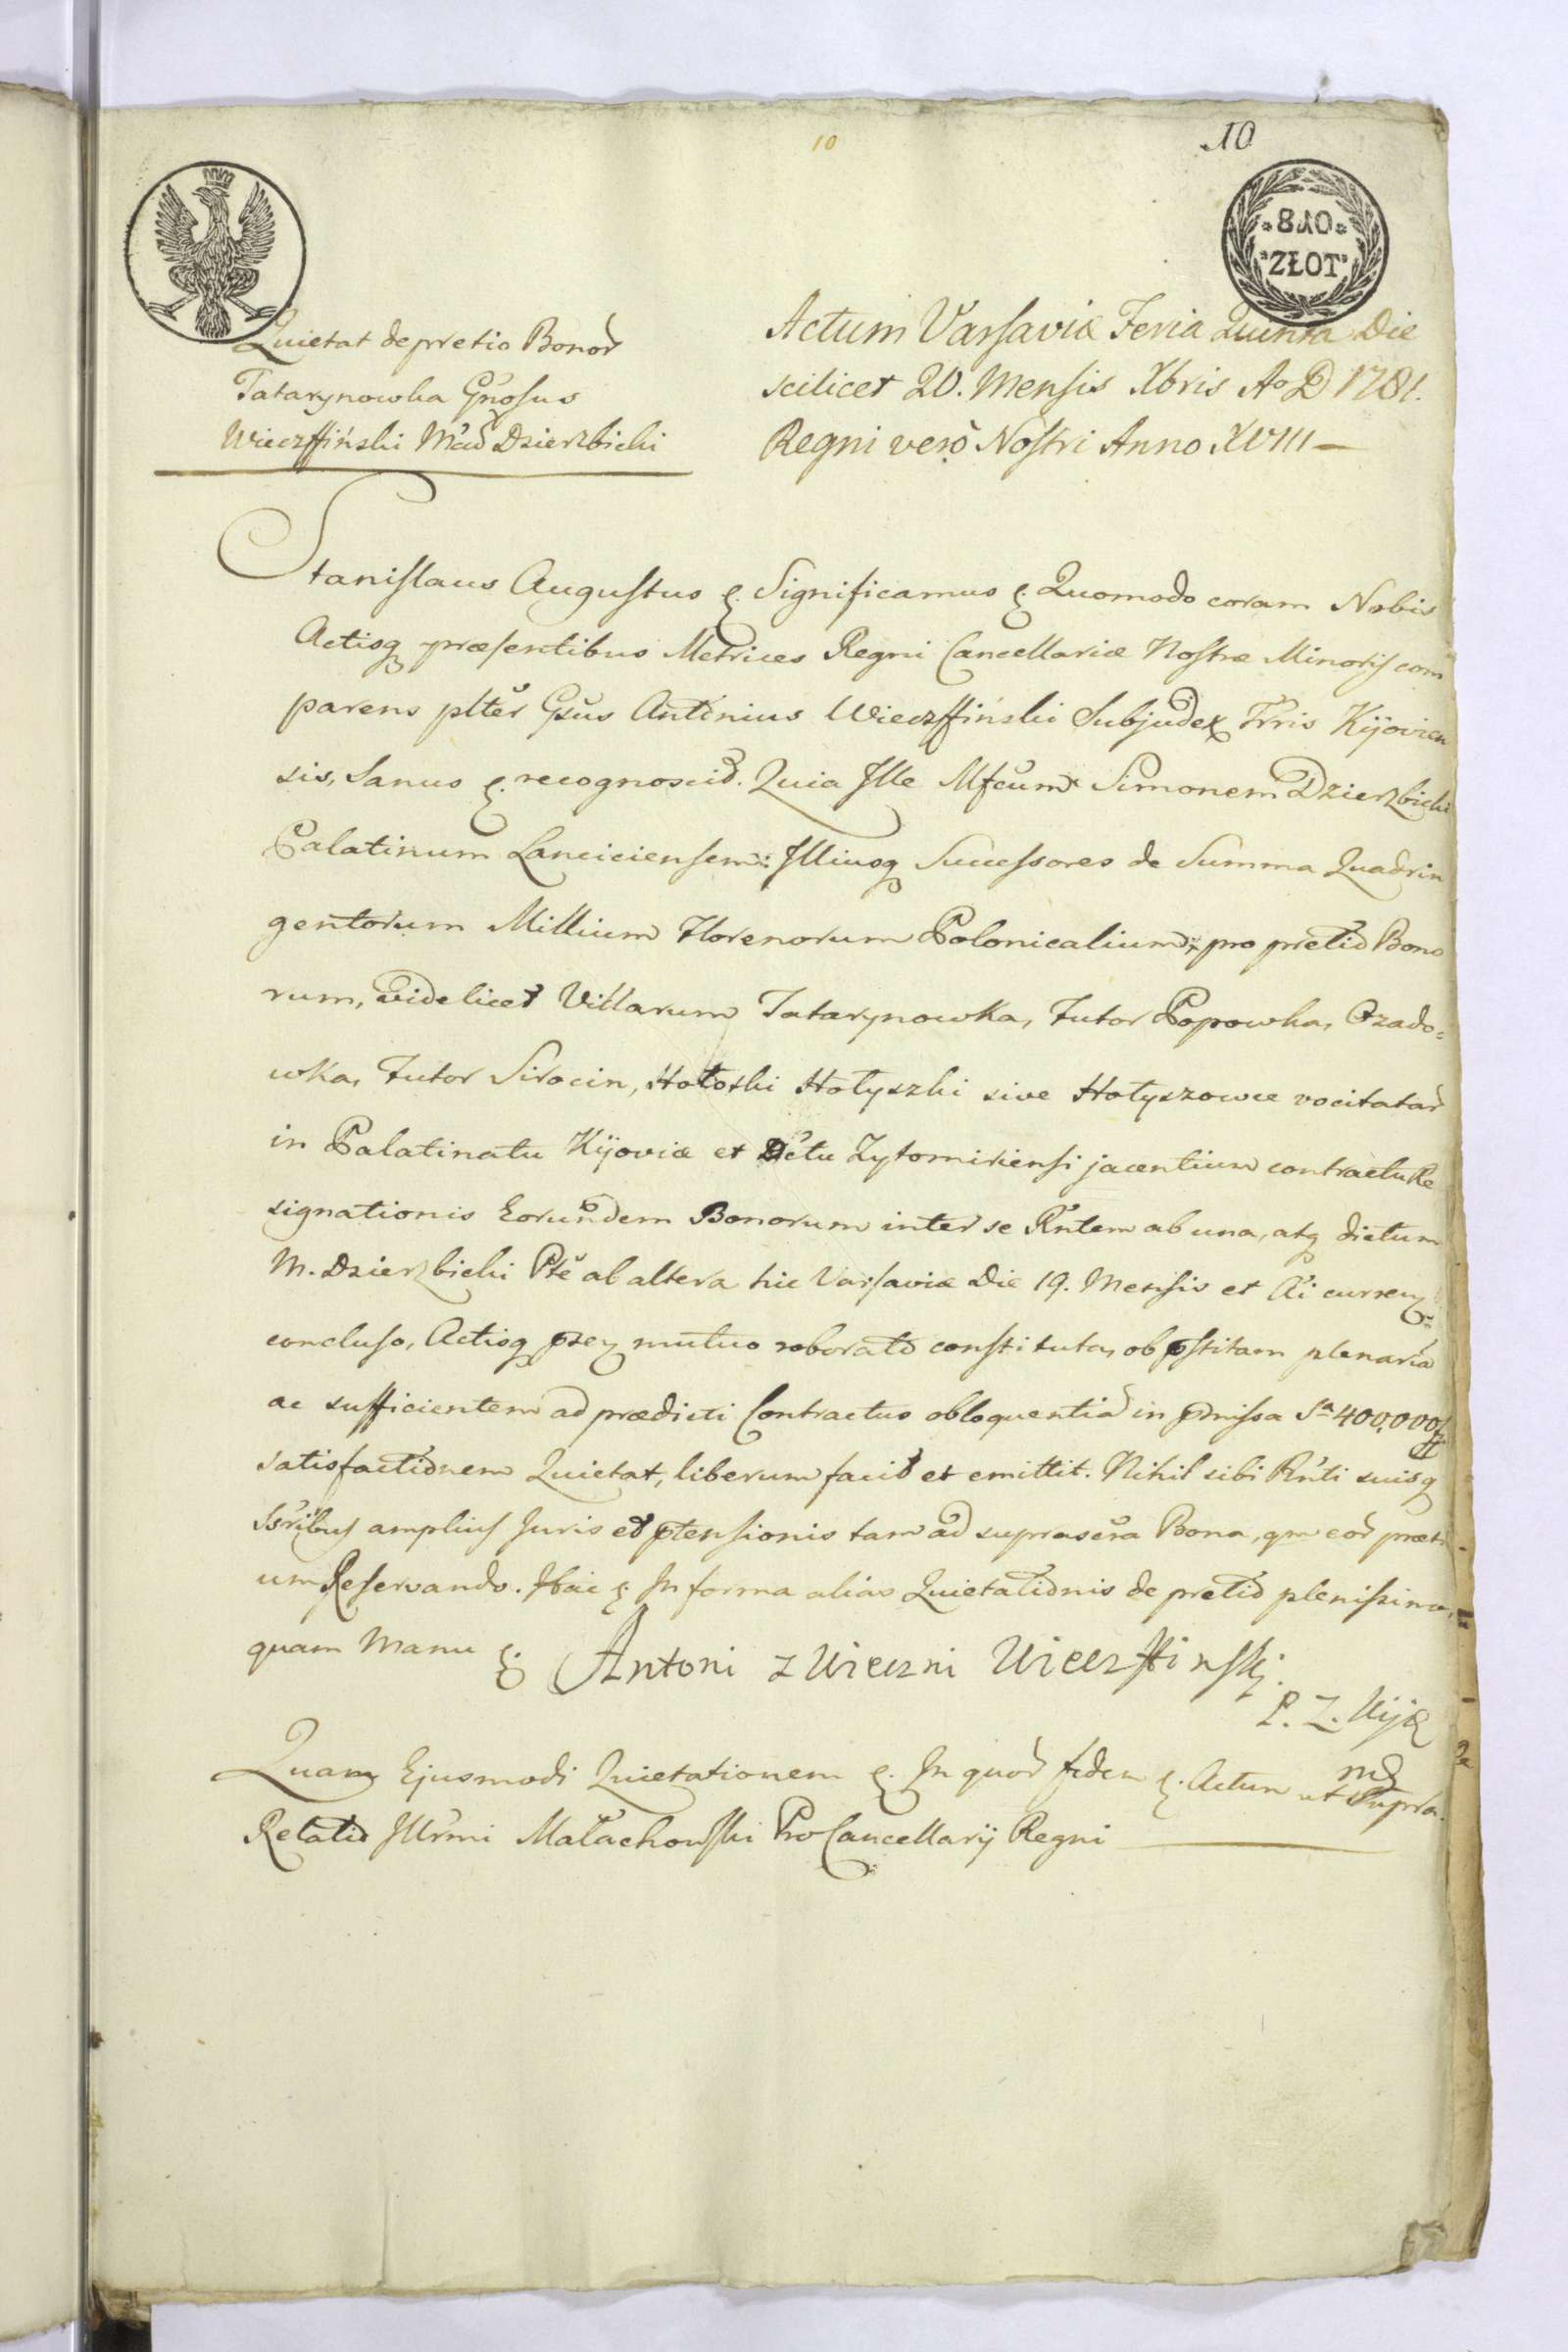 10
10
810
ZŁOT
Quietat de pretio Bonor̃
Tatarynowka Gñosus
Wieczffiński Mcũ Dzierzbicki
Actum Varsaviæ Feria Quinta Die
scilicet 20. Mensis Xbris Ao D 1781.
Regni verò Nostri Anno XVIII
Stanislaus Augustus &. Significamus &. Quomodo coram Nobis
Actisq præsentibus Metrices Regni Cancellariæ Nostræ Minoris com
parens plter Gsus Antonius Wieczffiński Subjudex Trris Kijovien
sis, Sanus &. recognoscit. Quia Ille Mfcum Simonem Dzierzbicki
Palatinum Lanciciensem: Illiusq Successores de Summa Quadrin
gentorum Millium Florenorum Polonicalium, pro pretio Bono
rum, videlicet Villarum Tatarynowka, Futor Popowka, Ozado=
wka, Futor Sirocin, Hołoski Hołyszki sive Hołyszowce vocitatar̃
in Palatinatu Kijoviæ et Dctu Zytomiriensi jacentium contractu Re
signationis Eorundem Bonorum inter se Rntem ab una, atq dictum
M. Dzierzbicki Pte ab altera hic Varsaviæ Die 19. Mensis et Ai curren
concluso, Actisq mutuo roborato constituta, ob pstitam plenaria
ac sufficientem ad prædicti Contractus obloquentiã in pmissa Sa 400,000 f
satisfactionem Quietat, liberum facit et emittit. Nihil sibi Rnti suisq
Ssribus amplius Juris et ptensionis tam ad suprascra Bona, qm eor̃ præti
um Reservando. Hac &. In forma alias Quietationis de pretio plenissima,
quam Manu &. Antoni z Wieczni Wieczffinski.
P. Z. Kij
mp
Quam Ejusmodi Quietationem &. In quor̃ fidem &. Actum ut Supra.
Relatio Illrmi Małachowski ProCancellarij Regni